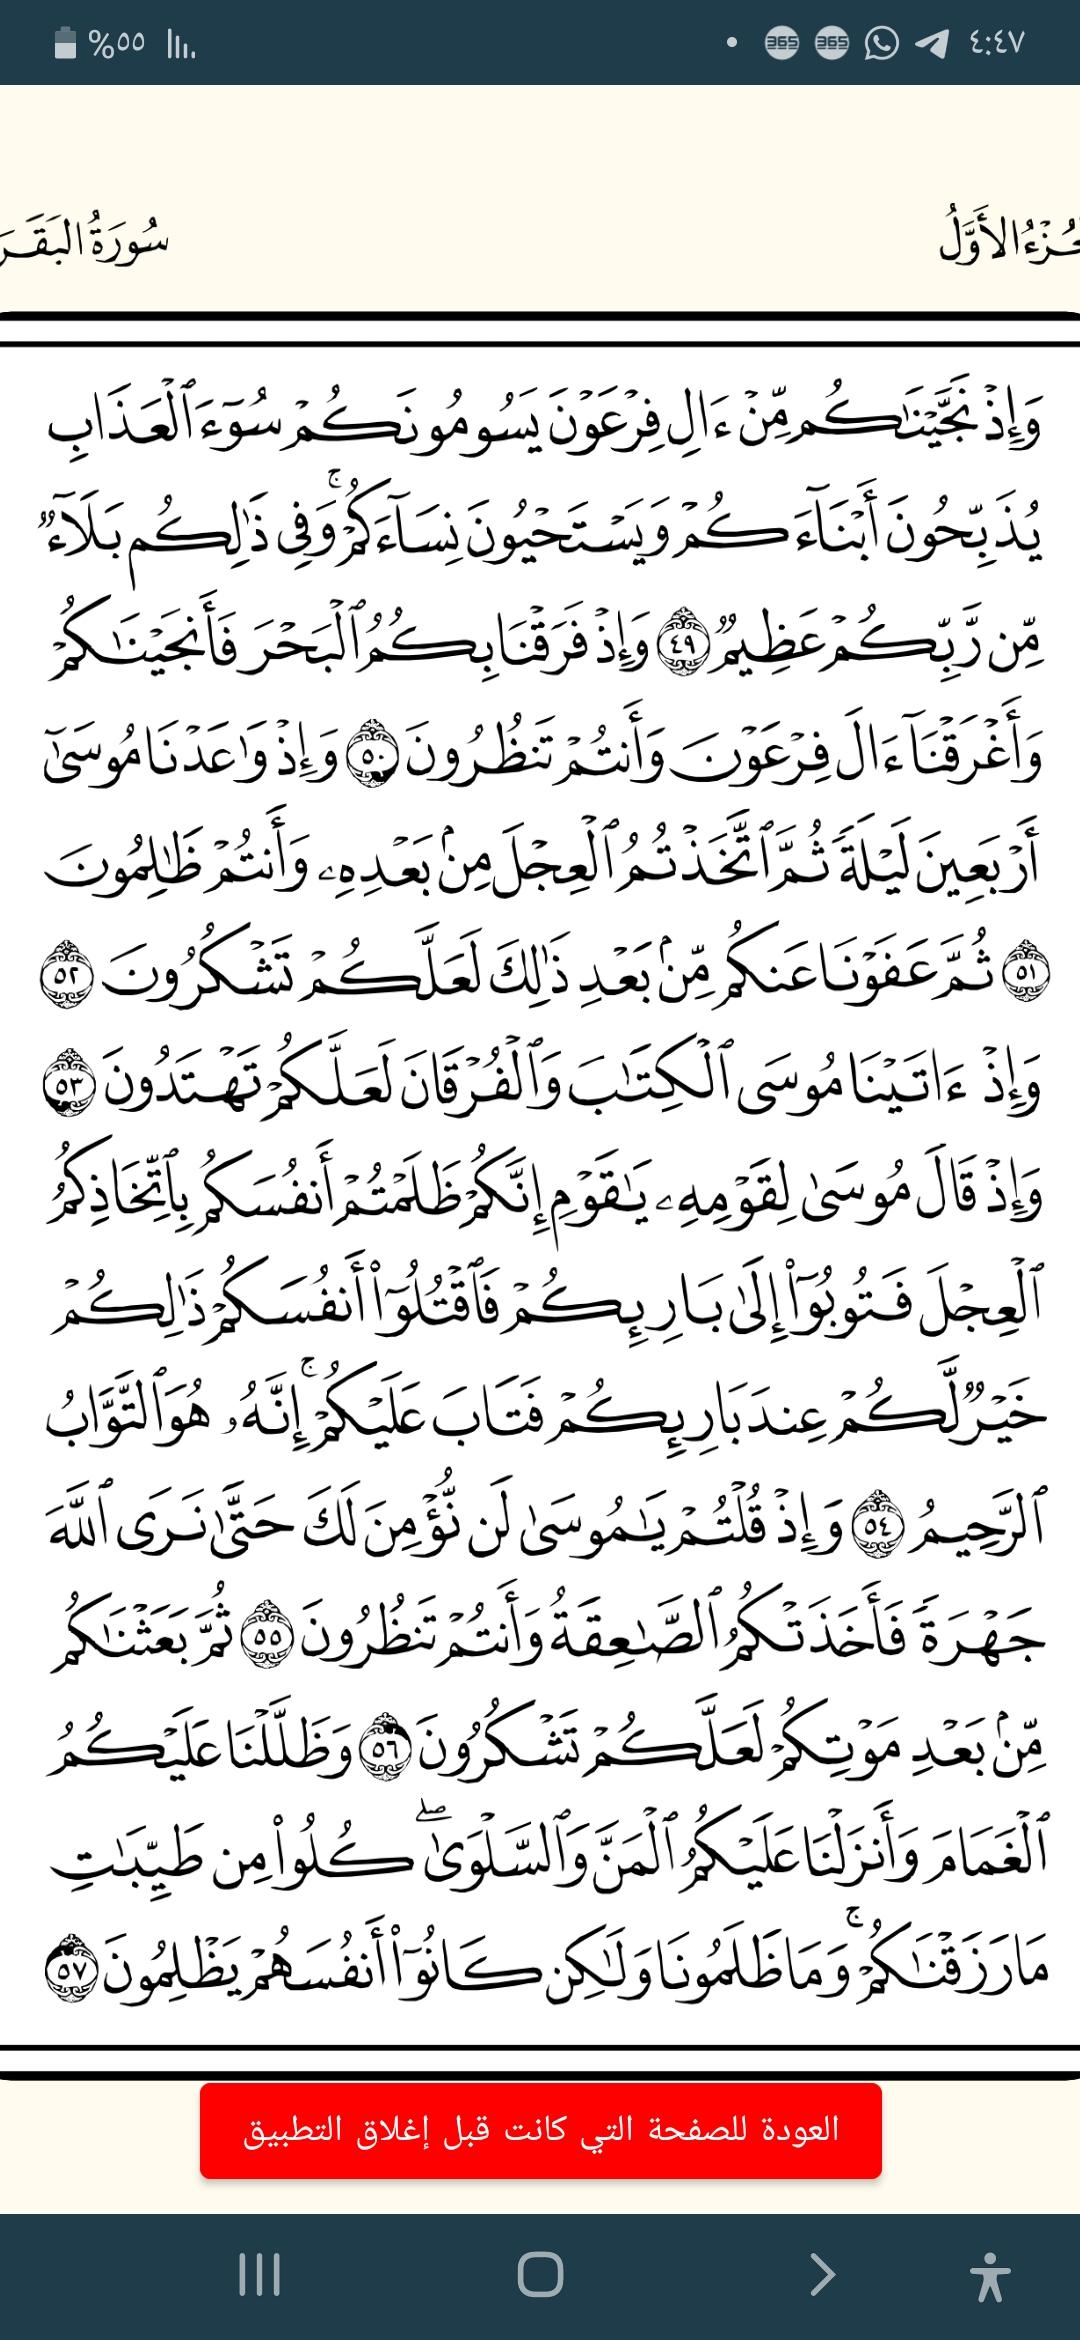 ٤:٤٧ 365 365 %٥٥
الجُزْءُ الأَوَّلُ سُورَةُ البَقَرَ
وَإِذۡ نَجَّيۡنَٰكُم مِّنۡ ءَالِ فِرۡعَوۡنَ يَسُومُونَكُمۡ سُوٓءَ ٱلۡعَذَابِ
يُذَبِّحُونَ أَبۡنَآءَكُمۡ وَيَسۡتَحۡيُونَ نِسَآءَكُمۡۚ وَفِي ذَٰلِكُم بَلَآءٞ
مِّن رَّبِّكُمۡ عَظِيمٞ ٤٩ وَإِذۡ فَرَقۡنَا بِكُمُ ٱلۡبَحۡرَ فَأَنجَيۡنَٰكُمۡ
وَأَغۡرَقۡنَآ ءَالَ فِرۡعَوۡنَ وَأَنتُمۡ تَنظُرُونَ ٥٠ وَإِذۡ وَٰعَدۡنَا مُوسَىٰٓ
أَرۡبَعِينَ لَيۡلَةٗ ثُمَّ ٱتَّخَذۡتُمُ ٱلۡعِجۡلَ مِنۢ بَعۡدِهِۦ وَأَنتُمۡ ظَٰلِمُونَ
٥١ ثُمَّ عَفَوۡنَا عَنكُم مِّنۢ بَعۡدِ ذَٰلِكَ لَعَلَّكُمۡ تَشۡكُرُونَ ٥٢
وَإِذۡ ءَاتَيۡنَا مُوسَى ٱلۡكِتَٰبَ وَٱلۡفُرۡقَانَ لَعَلَّكُمۡ تَهۡتَدُونَ ٥٣
وَإِذۡ قَالَ مُوسَىٰ لِقَوۡمِهِۦ يَٰقَوۡمِ إِنَّكُمۡ ظَلَمۡتُمۡ أَنفُسَكُم بِٱتِّخَاذِكُمُ
ٱلۡعِجۡلَ فَتُوبُوٓاْ إِلَىٰ بَارِئِكُمۡ فَٱقۡتُلُوٓاْ أَنفُسَكُمۡ ذَٰلِكُمۡ
خَيۡرٞ لَّكُمۡ عِندَ بَارِئِكُمۡ فَتَابَ عَلَيۡكُمۡۚ إِنَّهُۥ هُوَ ٱلتَّوَّابُ
ٱلرَّحِيمُ ٥٤ وَإِذۡ قُلۡتُمۡ يَٰمُوسَىٰ لَن نُّؤۡمِنَ لَكَ حَتَّىٰ نَرَى ٱللَّهَ
جَهۡرَةٗ فَأَخَذَتۡكُمُ ٱلصَّٰعِقَةُ وَأَنتُمۡ تَنظُرُونَ ٥٥ ثُمَّ بَعَثۡنَٰكُم
مِّنۢ بَعۡدِ مَوۡتِكُمۡ لَعَلَّكُمۡ تَشۡكُرُونَ ٥٦ وَظَلَّلۡنَا عَلَيۡكُمُ
ٱلۡغَمَامَ وَأَنزَلۡنَا عَلَيۡكُمُ ٱلۡمَنَّ وَٱلسَّلۡوَىٰۖ كُلُواْ مِن طَيِّبَٰتِ
مَا رَزَقۡنَٰكُمۡۚ وَمَا ظَلَمُونَا وَلَٰكِن كَانُوٓاْ أَنفُسَهُمۡ يَظۡلِمُونَ ٥٧
العودة للصفحة التي كانت قبل إغلاق التطبيق